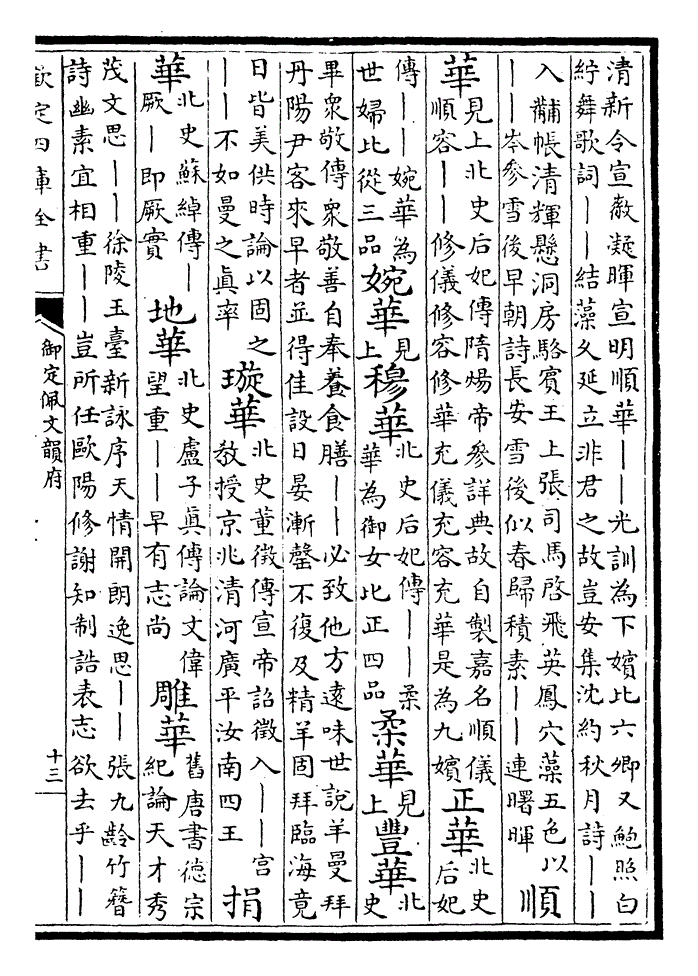 清新令宣敷凝暉宣明順華｜｜光訓為下嬪比六卿又鮑照白
紵舞歌詞｜｜結藻久延立非君之故豈安集沈約秋月詩｜｜
入黼帳清輝懸洞房駱賓王上張司馬啓飛英鳳穴藻五色以
｜｜岑參雪後早朝詩長安雪後似春歸積素｜｜連曙暉 順
華 見上北史后妃傳隋煬帝參詳典故自製嘉名順儀順容｜｜修儀修容修華充儀充容充華是為九嬪 正華 北史后妃
傳｜｜婉華為世婦比從三品 婉華 見上 穆華 北史后妃傳｜｜柔華為御女比正四品 柔華 見上 豐華 北史
畢眾敬傳眾敬善自奉養食膳｜｜必致他方遠味世說羊曼拜
丹陽尹客來早者並得佳設日晏漸罄不復及精羊固拜臨海竟
日皆美供時論以固之｜｜不如曼之眞率 璇華 北史董徵傳宣帝詔徵入｜｜宮教授京兆清河廣平汝南四王 捐
華 北史蘇綽傳｜厥｜即厥實 地華 北史盧子眞傳論文偉望重｜｜早有志尚 雕華 舊唐書德宗紀論天才秀
茂文思｜｜徐陵玉臺新詠序天情開朗逸思｜｜張九齡竹簪
詩幽素宜相重｜｜豈所任歐陽修謝知制誥表志欲去乎｜｜
欽定四庫全書
御定佩文韻府
十三